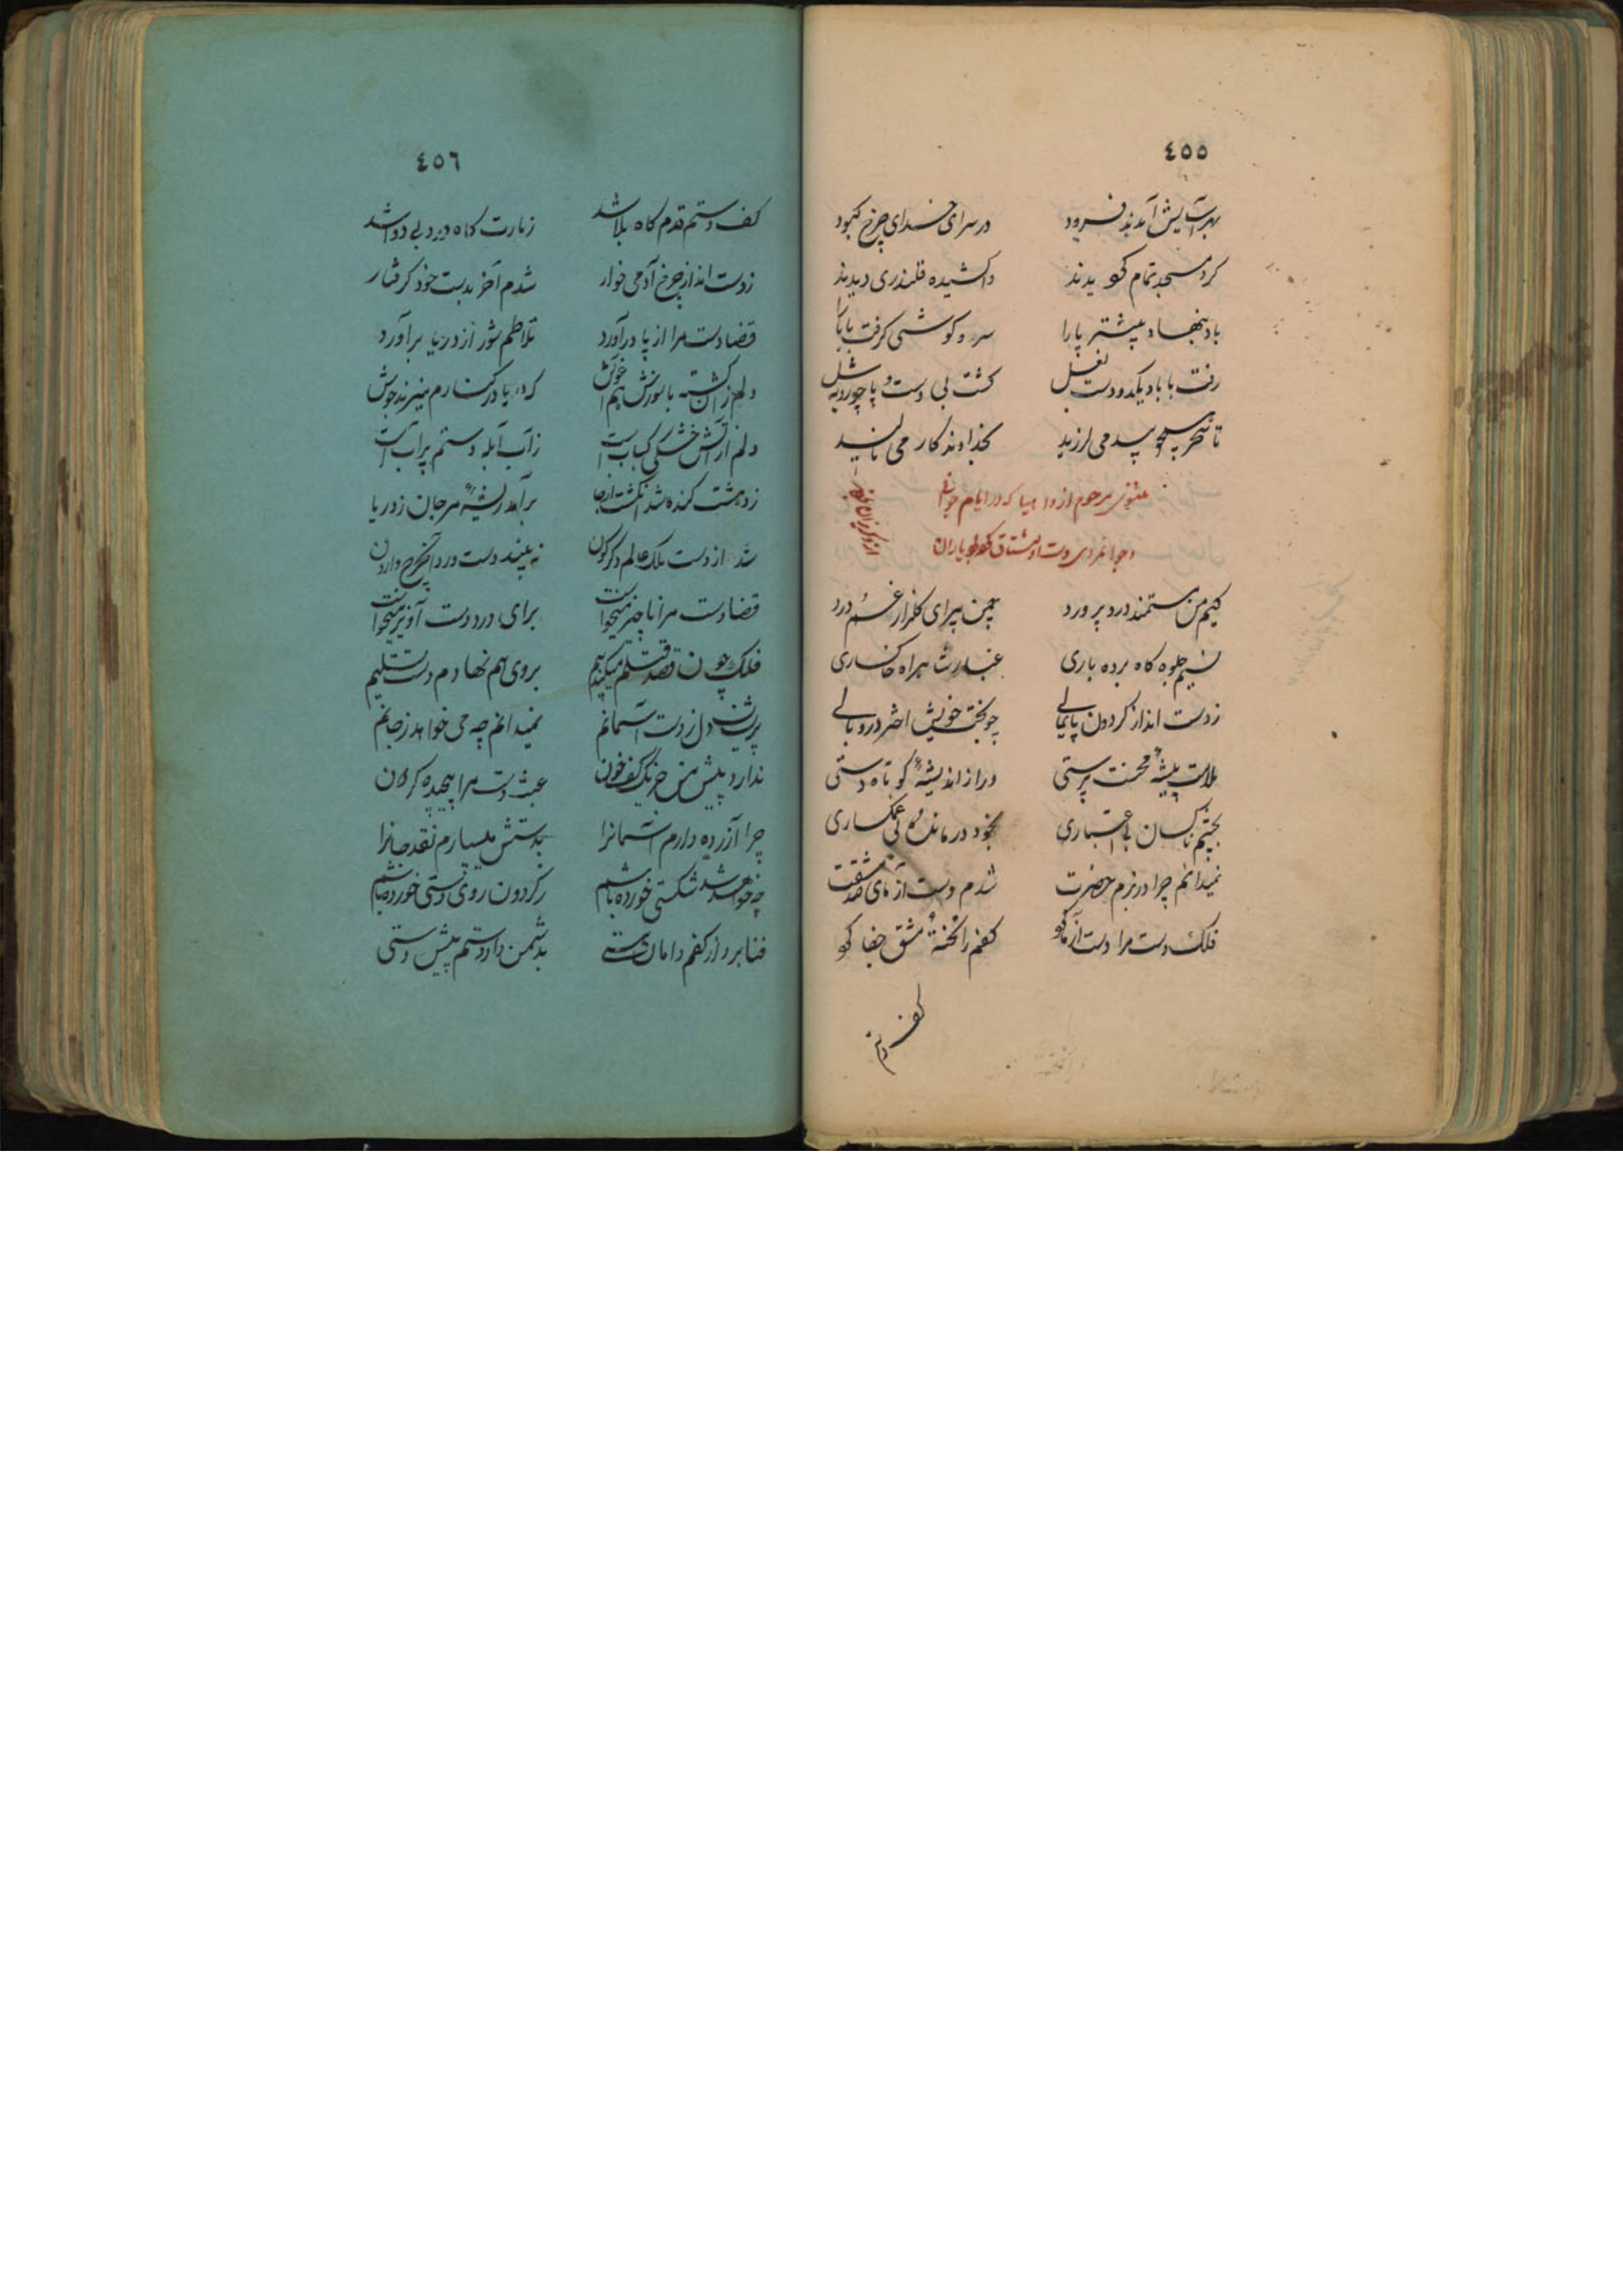 ٤٥٥
بهر آسایش آمدند فرود در سرای خدای چرخ کبود
کرد مسجد تمام کو یدند واکشیده قلندری دیدند
باد بنهاد پیشتر پا را سر و کوشی کرفت بابا را
رفت بابا دیکدو دست بغل کشت بی دست و پا چو شل
تا سحر همچو بید می لرزید بخداوند کار می نالید
مثنوی مرحوم که در ایام جوانی
و جوانمردی دست او مشتاق یاران
کیم من مستمند درد پرورد چمن پیرای کلزار غم و درد
نسیم جلوه کاه برده باری غبار راه خاکساری
زدست انداز کردون پایمالی چو بخت خویش اختر در وبالی
ملامت پیشهٔ محنت پرستی دراز اندیشهٔ کوتاه دستی
بچشم ناکسان بی اعتباری بخود درماندهٔ بی غمکساری
نمیدانم چرا در بزم حضرت شدم دست آزمای صد مشقت
فلک دست مرا دست آزما کو کفم را تختهٔ مشق جفا کو
کف دستم
٤٥٦
کف دستم قدم کاه بلا شد زیارت کاه درد بی دوا شد
زدست انداز چرخ آدمی خوار شدم آخر بدست خود کرفتار
قضا دست مرا از پا درآورد تلاطم شور از دریا برآورد
دلم زان کشته با سوزش هم آغوش که دریا در کنارم میزند جوش
دلم از آتش خشکی کباب است ز آب آبله دستم پر آب است
ز دهشت کنده شد انکشت از جا برآمد ریشهٔ مرجان ز دریا
شد از دست ملک عالم دکرکون نه بیند دست درد از چرخ وارون
قضا دست مرا ناچیز میخواست برای درد دست آویز میخواست
فلک چون قصد قتلم میکند بروی هم نهادم دست تسلیم
پریشان دل ز دست آسمانم نمیدانم چه می خواهد ز جانم
ندارد پیش من جز یک کف خون عبث دست مرا پیچیده کردون
چرا آزرده دارم آسمانرا بدستش میسپارم نقد جانرا
چه خواهد شد شکستی خورده باشم ز کردون روی دستی خورده باشم
فنا برد از کفم دامان هستی بدشمن داد دستم پیش دستی